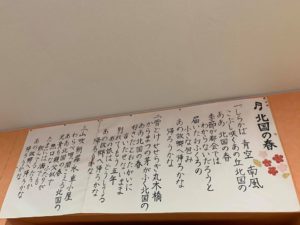 北国の春
一しらかば 青空 南風
こぶし咲くあの丘 北国の
ああ 北国の春
季節が都会では
わからないだろうと
届いたおふくろの
小さな包み
あの故郷へ帰ろうかな
帰ろうかな
二雪どけ せせらぎ 丸木橋
からまつの芽がふく北国の
ああ 北国の春
好きだとおたがいに
言いだせないまま
別れてもう五年
あの故郷へ帰ろうかな
帰ろうかな
三山吹 朝霧 水車小屋
ああ 北国の春
あの故郷へ帰ろうかな
帰ろうかな